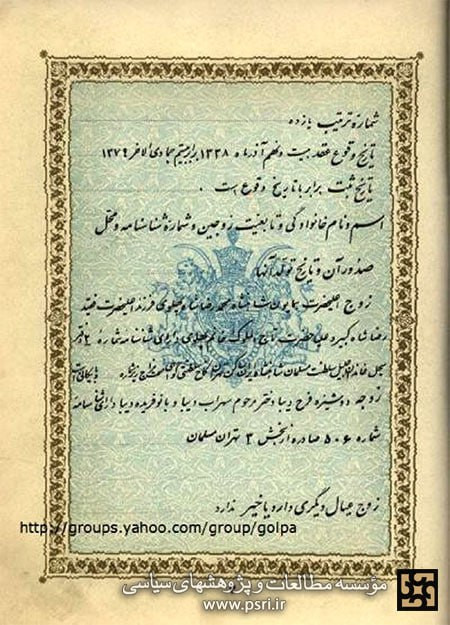 شمارهٔ ترتیب یازده
تاریخ وقوع عقد بیست و نهم آذرماه ۱۳۳۸ برابر بیستم جمادی الاخر ۱۳۷۹
تاریخ ثبت برابر با تاریخ وقوع است .
اسم و نام خانوادگی و تابعیت زوجین و شمارهٔ شناسنامه و محل
صدور آن و تاریخ تولد آنها
زوج اعلیحضرت همایون شاهنشاه محمد رضا شاه پهلوی فرزند اعلیحضرت فقید
رضا شاه کبیر و علیاحضرت تاج الملوک خانم پهلوی دارای شناسنامه شماره ۲ دفتر
سجل خاندان جلیل سلطنت مسلمان شاهنشاه ایران
زوجه دوشیزه فرح دیبا دختر مرحوم سهراب دیبا و بانو فریده دیبا دارای شناسنامه
شماره ۵۰۶ صادره از بخش ۳ تهران مسلمان
زوج عیال دیگری دارد یا خیر ندارد
http://groups.yahoo.com/group/golpa
مؤسسه مطالعات و پژوهشهای سیاسی
www.psri.ir